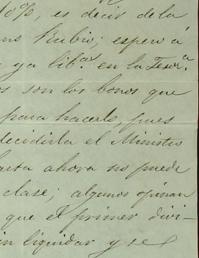 10%, es decir de la
Rubio; espero á
ya lib.as en la Tesor.a
son los bonos que
para hacerlo, pues
decidirla el Ministro
hasta ahora no puede
clase; algunos opinan
que el primer divi-
liquidar y se